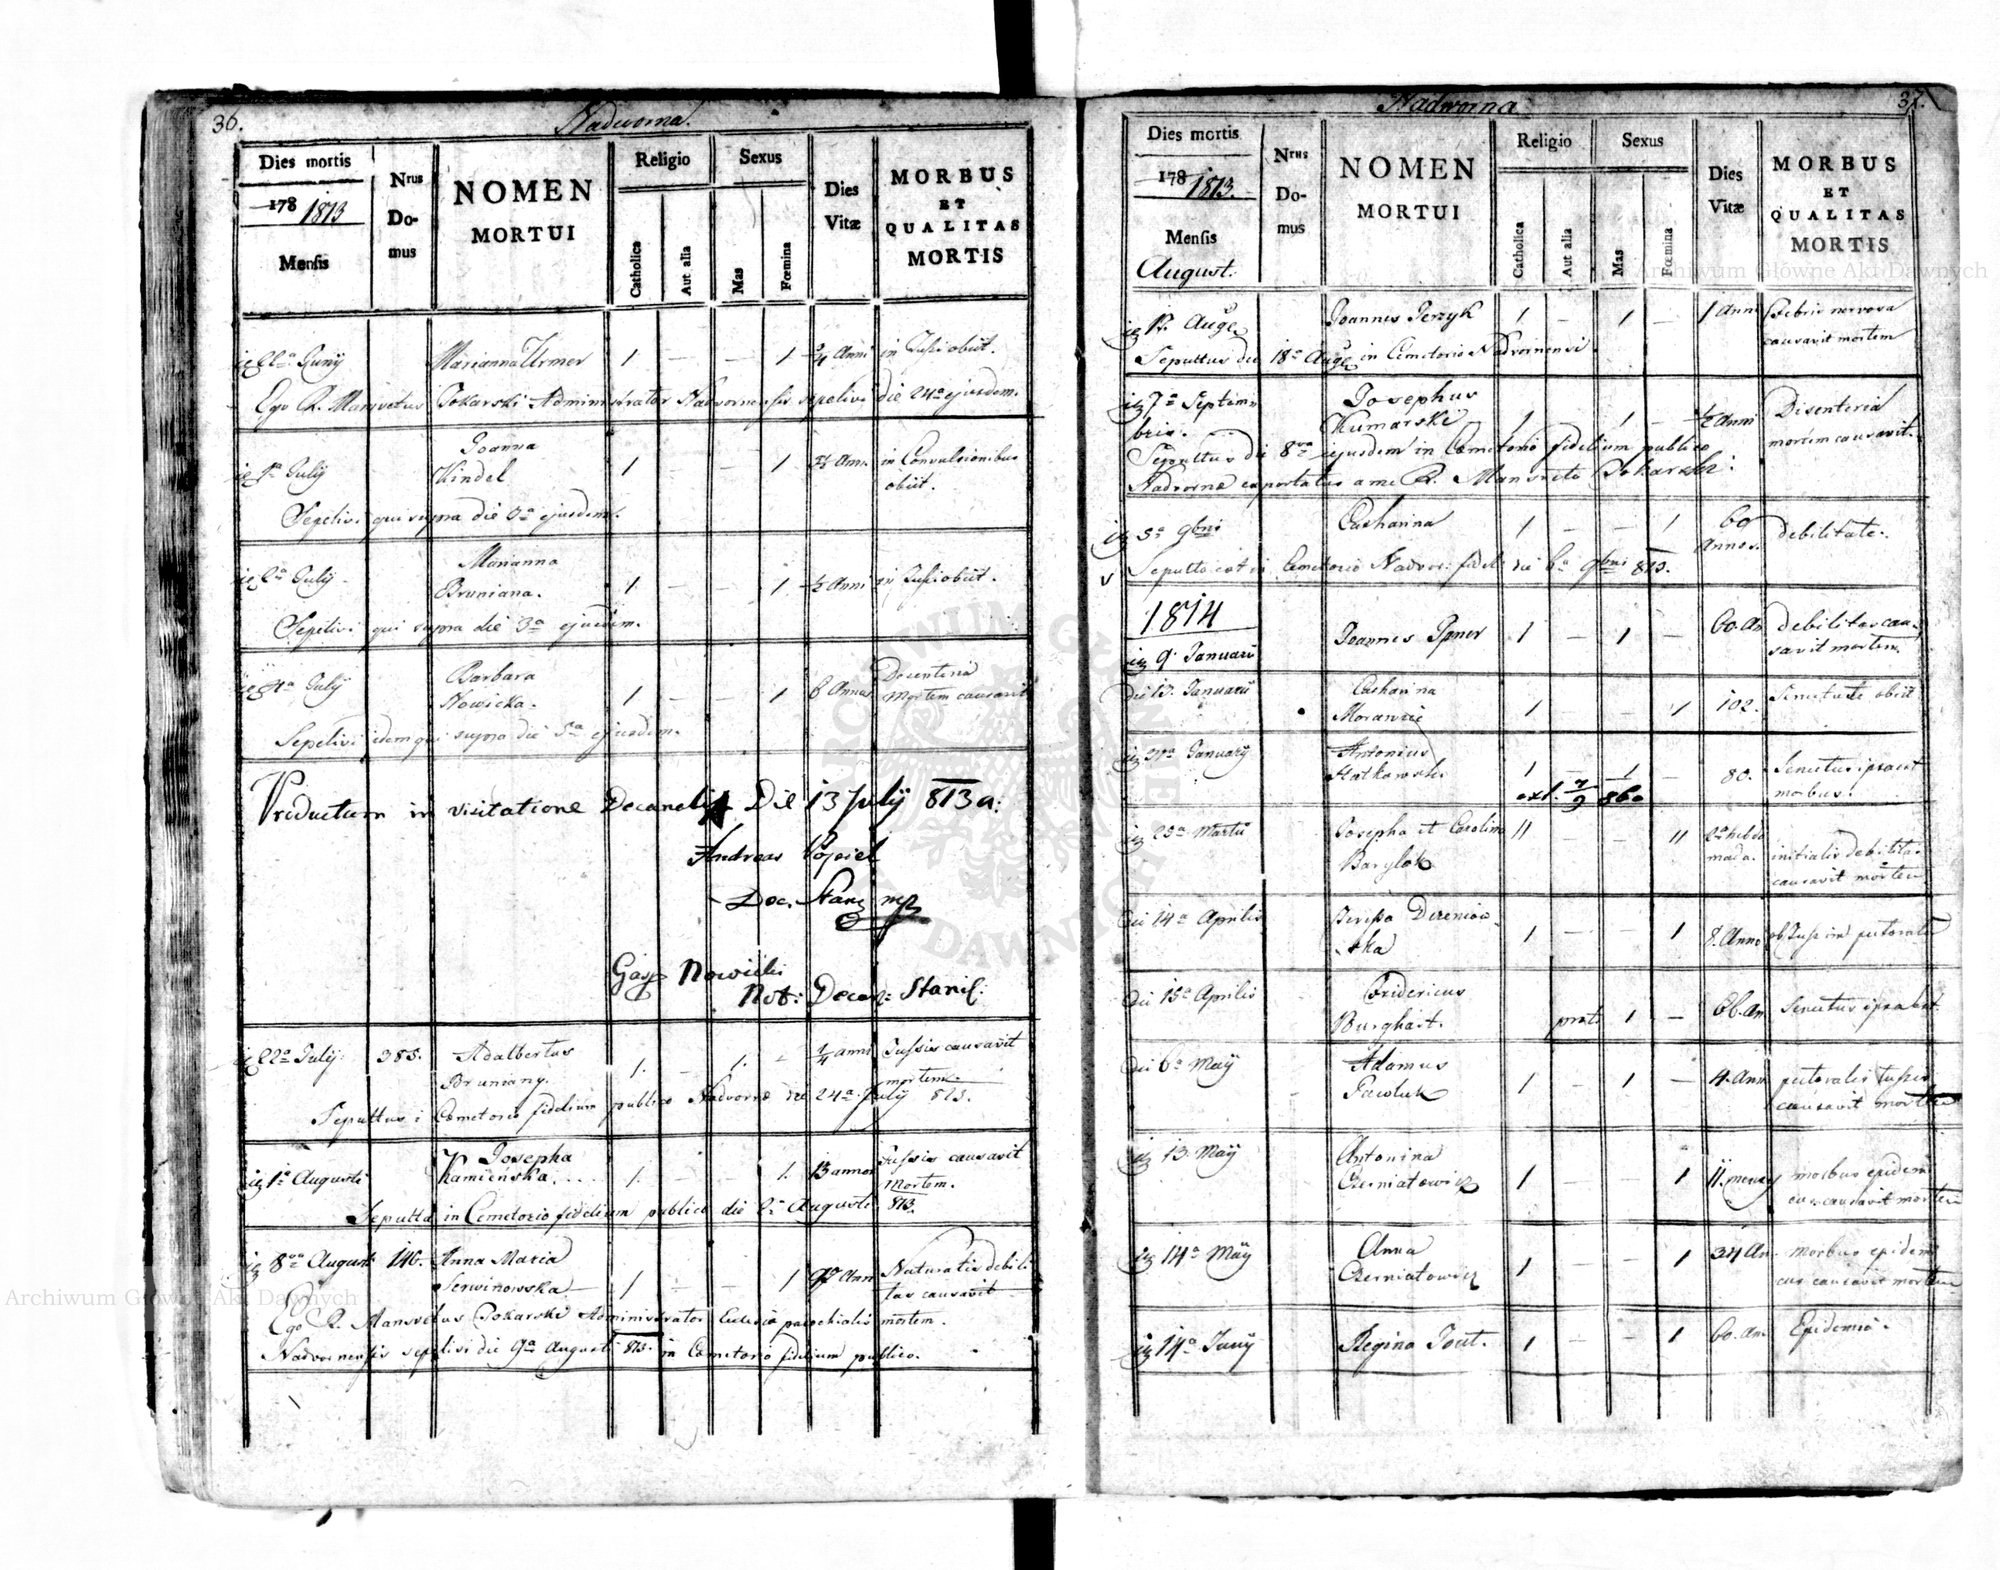 36.
Nadworna.
Dies mortis
178 1813
Mensis
Nrus
Do-
mus
NOMEN
MORTUI
Religio
Catholica
Aut alia
Sexus
Mas
Fœmina
Dies
Vitæ
MORBUS
ET
QUALITAS
MORTIS
Juny Marianna Urmer 1. — — 1 Anni in Tussi obiit.
Ego R. Mansvetus Tokarski Administrator Nadvornensis sepelivi die 24a ejusdem.
Joanna
July Kindel 1 — — 1 in Convulsionibus
obiit.
Sepelivi qui supra die 3a ejusdem.
Marianna
2a July Bruniana. 1. — — 1 ½ Anni in Tussi obiit.
Sepelivi qui supra die 3a ejusdem.
Barbara
4a July Nowicka. 1 — — 1 6 Annos
mortem causavit
Sepelivi idem qui supra die 5a ejusdem.
Productum in visitatione Decanali Die 13 July 813 a:
Andreas
Dec. Stan mp
Gasp Nowicki
Not: Decan: Stanisl:
22a July. 385. Adalbertus 1. — 1. — ¼ anni Tussis causavit
Bruniany. mortem.
Sepultus i Cemeterio fidelium publico Nadvorne die 24a July 813.
1a Augusti Josepha
Kamieńska. 1. — — 1. 13 annor Tussis causavit
Mortem.
Sepulta in Cemeterio fidelium publico die 2a Augusti 813.
8va Augusti 146. Anna Maria
Serwinowska 1 — — 1 Ann Naturalis debili-
tas causavit
Ego R. Mansvetus Tokarski Administrator Ecclesia parochialis mortem.
Nadvornensis sepelivi die 9na Augusti 813. in Cemeterio fidelium publico.
37.
Nadworna
Dies mortis
178 1813.
Mensis
August.
Nrus
Do-
mus
NOMEN
MORTUI
Religio
Catholica
Aut alia
Sexus
Mas
Fœmina
Dies
Vitæ
MORBUS
ET
QUALITAS
MORTIS
17. Aug Joannes Jerzyk 1 — 1 — 1 Anni Febris nervosa
causavit mortem
Sepultus die 18a Aug in Cemeterio Nadvornensi
7a Septem
bris. Josephus
Kumarski 1 — 1 — ½ Anni Disenteria
mortem causavit.
Sepultus die 8va ejusdem in Cœmeterio fidelium publico
Nadvornæ exportatus a me R. Mansveto Tokarski:
5a 9bris Catharina 1 — — 1 60
Annor. debilitate.
Sepulta est in Cemeterio Nadvor: fideli die 6a 9bris 813.
1814
9. January Joannes 1 — 1 — 60. An debilitas cau-
savit mortem.
January Catharina
1 — — 1 102. Senectute obiit
January Antonius
1 — 1 — 80. Senectus ipsa est
morbus.
ext. 7/9 860
25a Marty Josepha et Carolina
11 — — 11 2a hebdo
mada. initialis debilitas
causavit mortem
Die 14a Aprilis
-ska 1 — — 1 8. Anno
Die 15a Aprilis Fridericus
Burghart. prot. 1 — 66. An Senectus ipsa est
Die 6a May Adamus
Pawluk 1 — 1 — 4. Ann pectoralis tussis
causavit mortem
13. May Antonina
Czerniatowicz 1 — — 1 11. mensy morbus epidemi
cus causavit mortem
14a May Anna
Czerniatowicz 1 — — 1 34 An. morbus epidemi
cus causavit mortem
14a Juny Regina 1 — — 1 60. An Epidemia.
Archiwum Główne Akt Dawnych
Archiwum Główne Akt Dawnych
ARCHIWUM GŁÓWNE AKT DAWNYCH